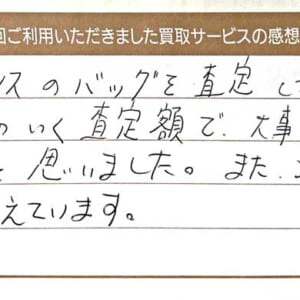 回ご利用いただきました買取サービスの感想
スのバッグを査定し
のいく査定額で、大事
思いました。また、
えています。